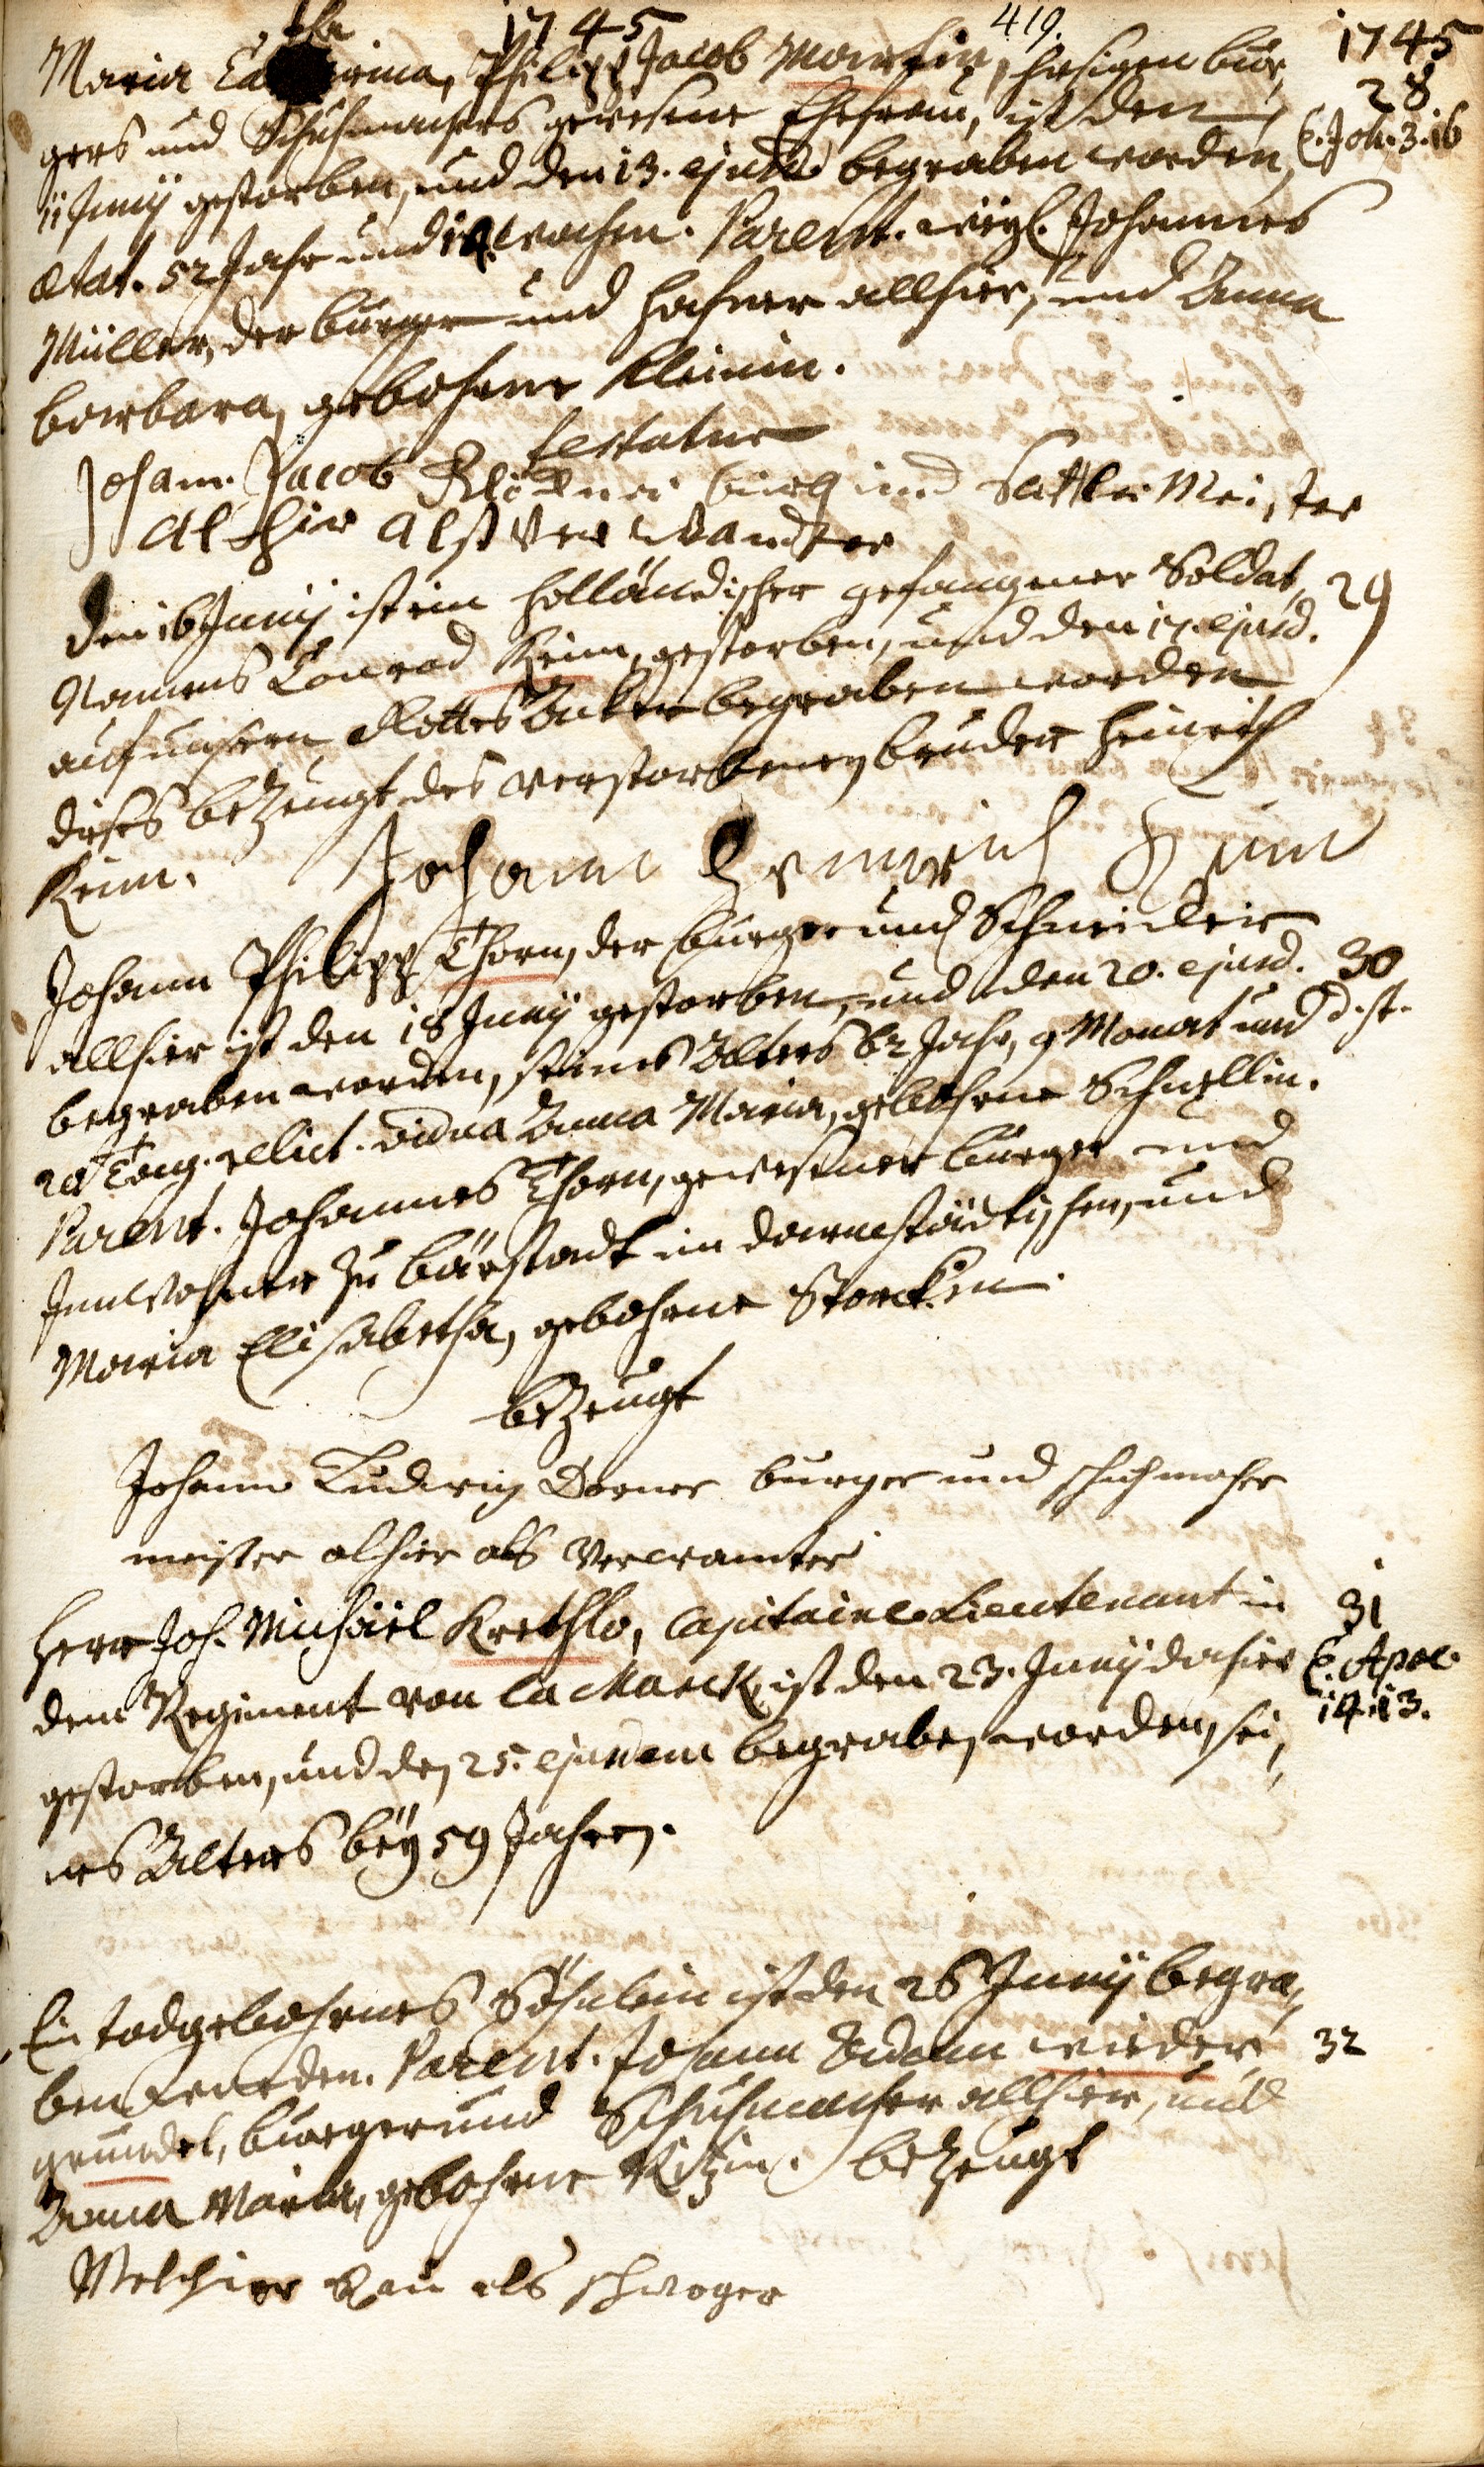 1745 419. 1745
Maria Catharina, Philipp Jacob Martin, hiesigen bur,
28
gers und Schuhmachers gewesene Ehefrau, ist den
C. Joh. 3.16
11 Junij gestorben, und den 13. ejusd. begraben worden,
ætat. 52 Jahr und 14 wochen. Parent. weyl. Johannes
Müller, der burger und hafner allhier, und Anna
barbara, gebohrne Kleinin.
testatur
Johann Jacob Klöckner burg und Sattler Meister
Al hier Alß Ver wandter
den 16 Junij ist ein holländischer gefangener Soldat, 29
Namens Conrad Keim, gestorben, und den 17. ejusd.
auf unsern Gottes Acker begraben worden
dieses bezeugt des verstorbenen bruder Heinrich
Keim. Johann Henrich Keim
Johann Philipp Thorn, der burger und Schneider
allhier ist den 18 Junij gestorben, und den 20. ejusd. 30
begraben worden, seines Alters 62 Jahr, 9 Monat und d. st.
20 Tag. relict. vidua Anna Maria, gebohrne Schnellin.
Parent. Johannes Thorn, gewesener burger und
Innwohner zu bärstadt im darmstädtischen, und
Maria Elisabetha, gebohrne Storckin.
bezeugt
Johann Ludwig Dorner burger und schuhmacher
meister alhier als Verwanter
Herr Joh. Michäel Krethlo, Capitaine Lieutenant in 31
dem Regiment von La Marck, ist den 23. Junij dahier C. Apoc.
14.13.
gestorben, und den 25. ejusdem begraben worden, sei,
nes Alters bey 59 Jahren.
Ein todgebohrnes Söhnlein ist den 26 Junij begra,
ben worden. Parent. Johann Adam wieder 32
grundel, burger und Schuhmacher allhier, und
Anna Maria, gebohrne Kitzin. bezeugt
Melchior Rau als schwager